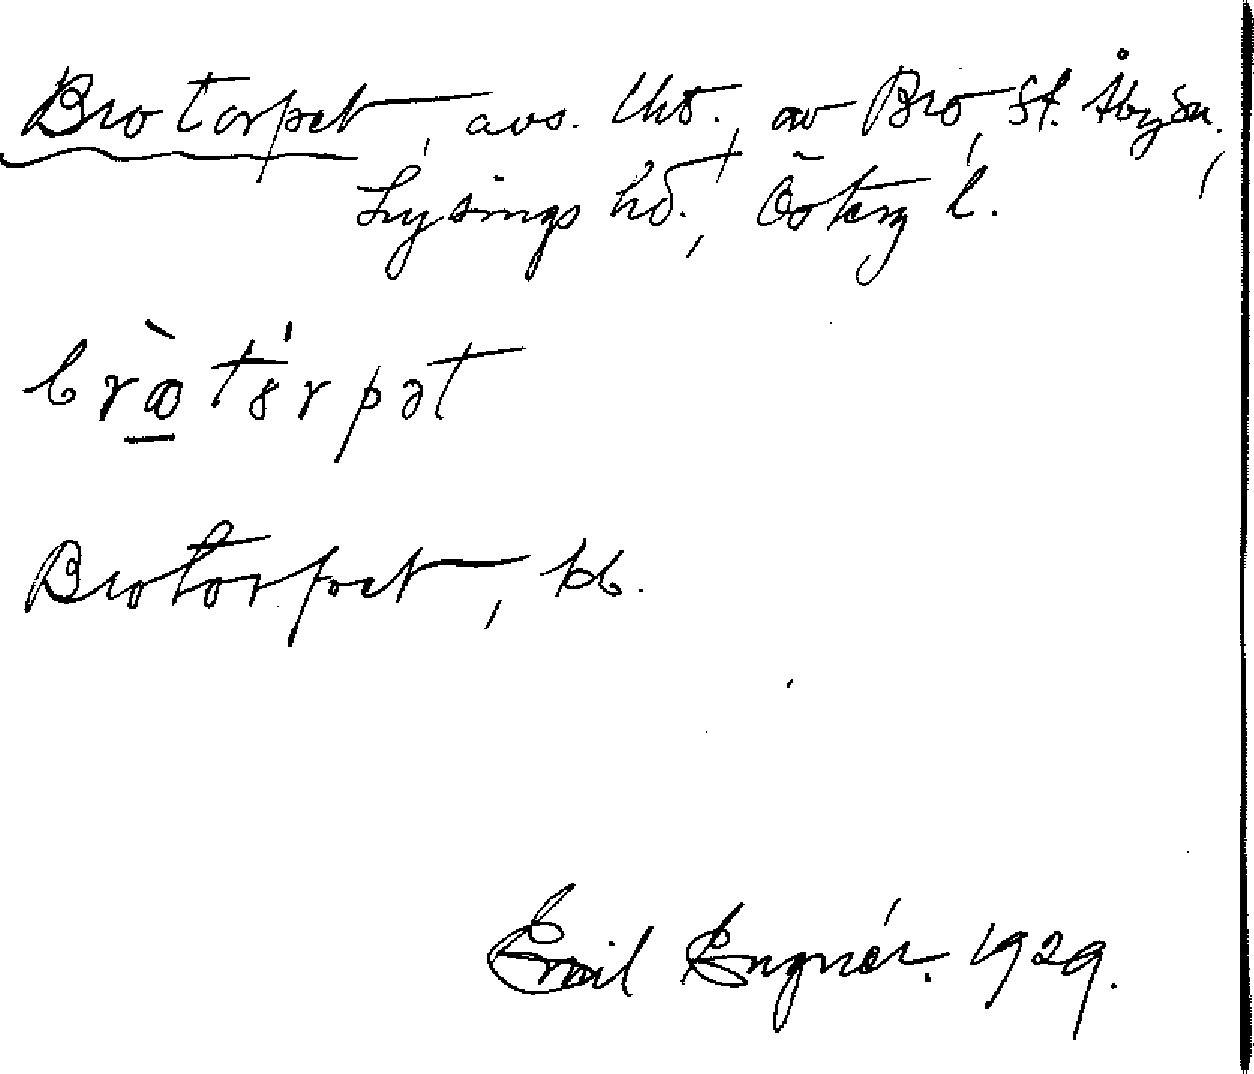 Brotorpet, avs. lht., av Bro, St. Åby sn,
Lysings hd., Österg l.
Brotorpet, kb.
Emil Engnér. 1929.